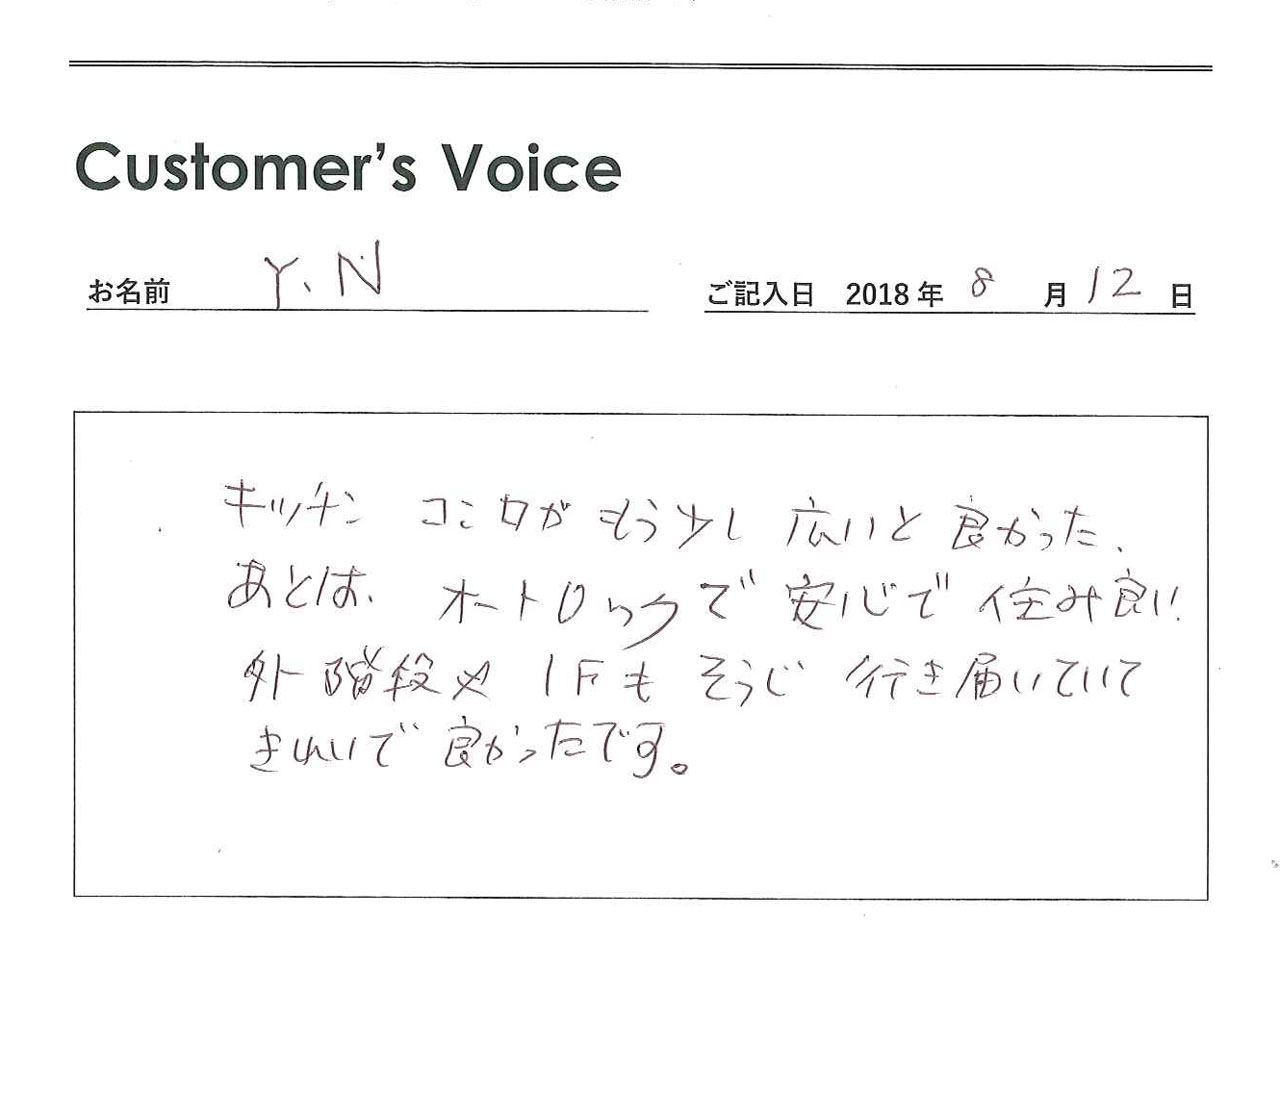 Customer's Voice
お名前 Y、N
ご記入日 2018年 8月 12日
キッチン コンロがもう少し 広いと 良かった、
あとは、オートロックで 安心で 住み良い!
外階段や 1Fも そうじ 行き届いていて
きれいで 良かったです。